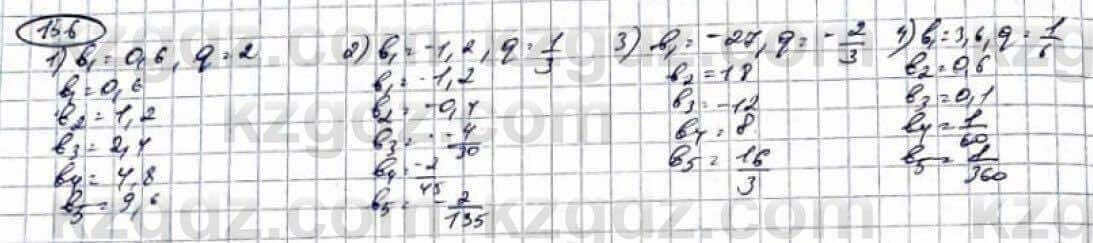 156
1) b₁ = 0,6, q = 2
b₁ = 0,6
b₂ = 1,2
b₃ = 2,4
b₄ = 4,8
b₅ = 9,6
2) b₁ = -1,2, q = 1/3
b₁ = -1,2
b₂ = -0,4
b₃ = -4/30
b₄ = -2/45
b₅ = -2/135
3) b₁ = -27, q = -2/3
b₂ = 18
b₃ = -12
b₄ = 8
b₅ = 16/3
4) b₁ = 3,6, q = 1/6
b₂ = 0,6
b₃ = 0,1
b₄ = 1/60
b₅ = 1/360
kzgdz.com